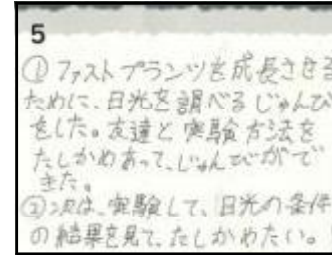 5
①ファストプランツを成長させる
ために、日光を調べるじゅんび
をした。友達と実験方法を
たしかめあって、じゅんびがで
きた。
②次は、実験して、日光の条件
の結果を見て、たしかめたい。